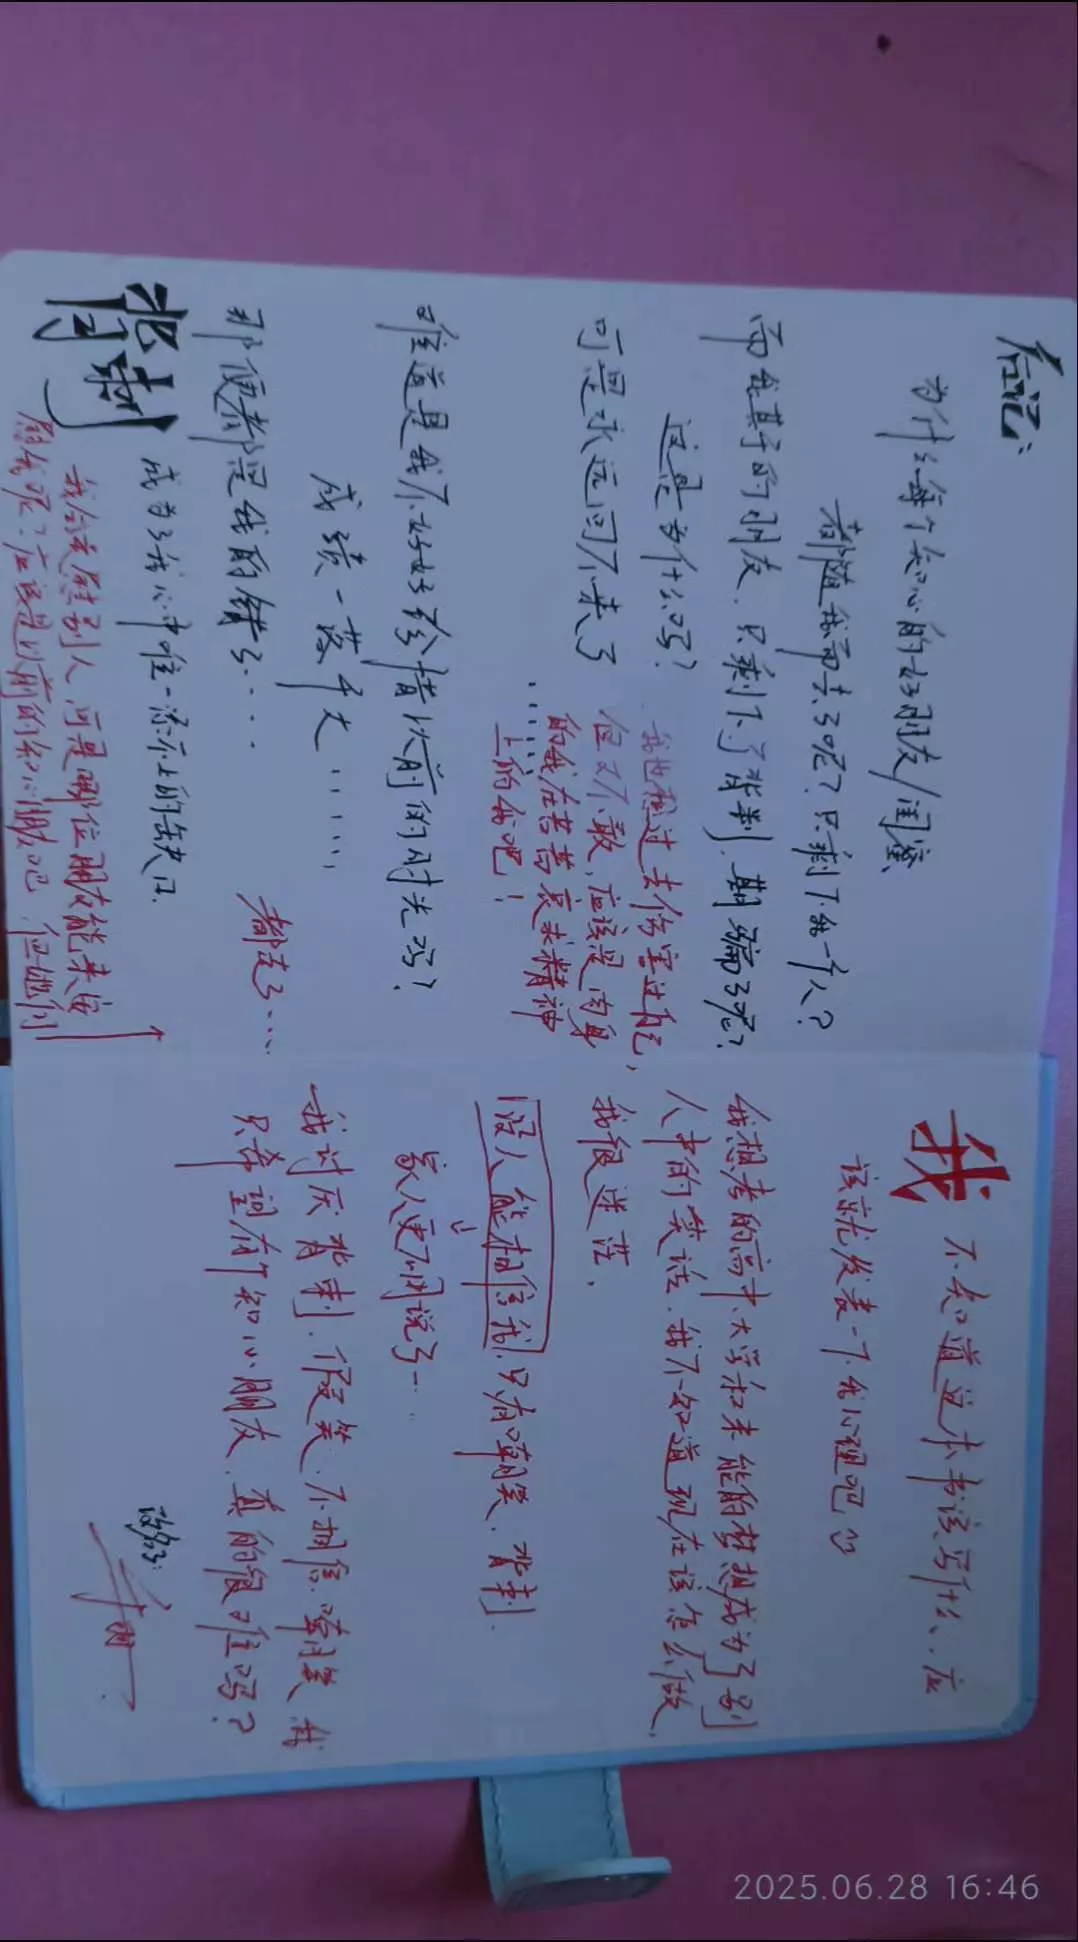 后记:
为什么每个知心的好朋友/闺蜜
都随我而去了呢？只剩下我一个人？
而我其于的朋友，只剩下了背刺，期骗了呢？
这是为什么吗？
可是永远回不来了
......
我也想过去伤害自己，
但又不敢，应该是肉身
的我在苦苦哀求精神
上的我吧！
难道是我不好好珍惜以前的时光吗？
成绩一落千丈......
那便都是钱的错了...
都走了....
背刺 成为了我心中唯一添不上的缺口.
我会安慰别人，可是哪位朋友能来安
慰我呢？应该是以前的知心朋友吧，但她们
我 不知道这本书该写什么，应
该就发表一下我心理吧
我想考的高中、大学和未来的梦想成为了别
人中的笑话，我不知道现在该怎么做，
我很迷茫.
没人能相信我，只有嘲笑，背刺.
家人更不用说了...
我讨厌背刺，假笑，不相信，嘲笑，我
只希望有个知心朋友，真的很难吗？
2025.06.28 16:46